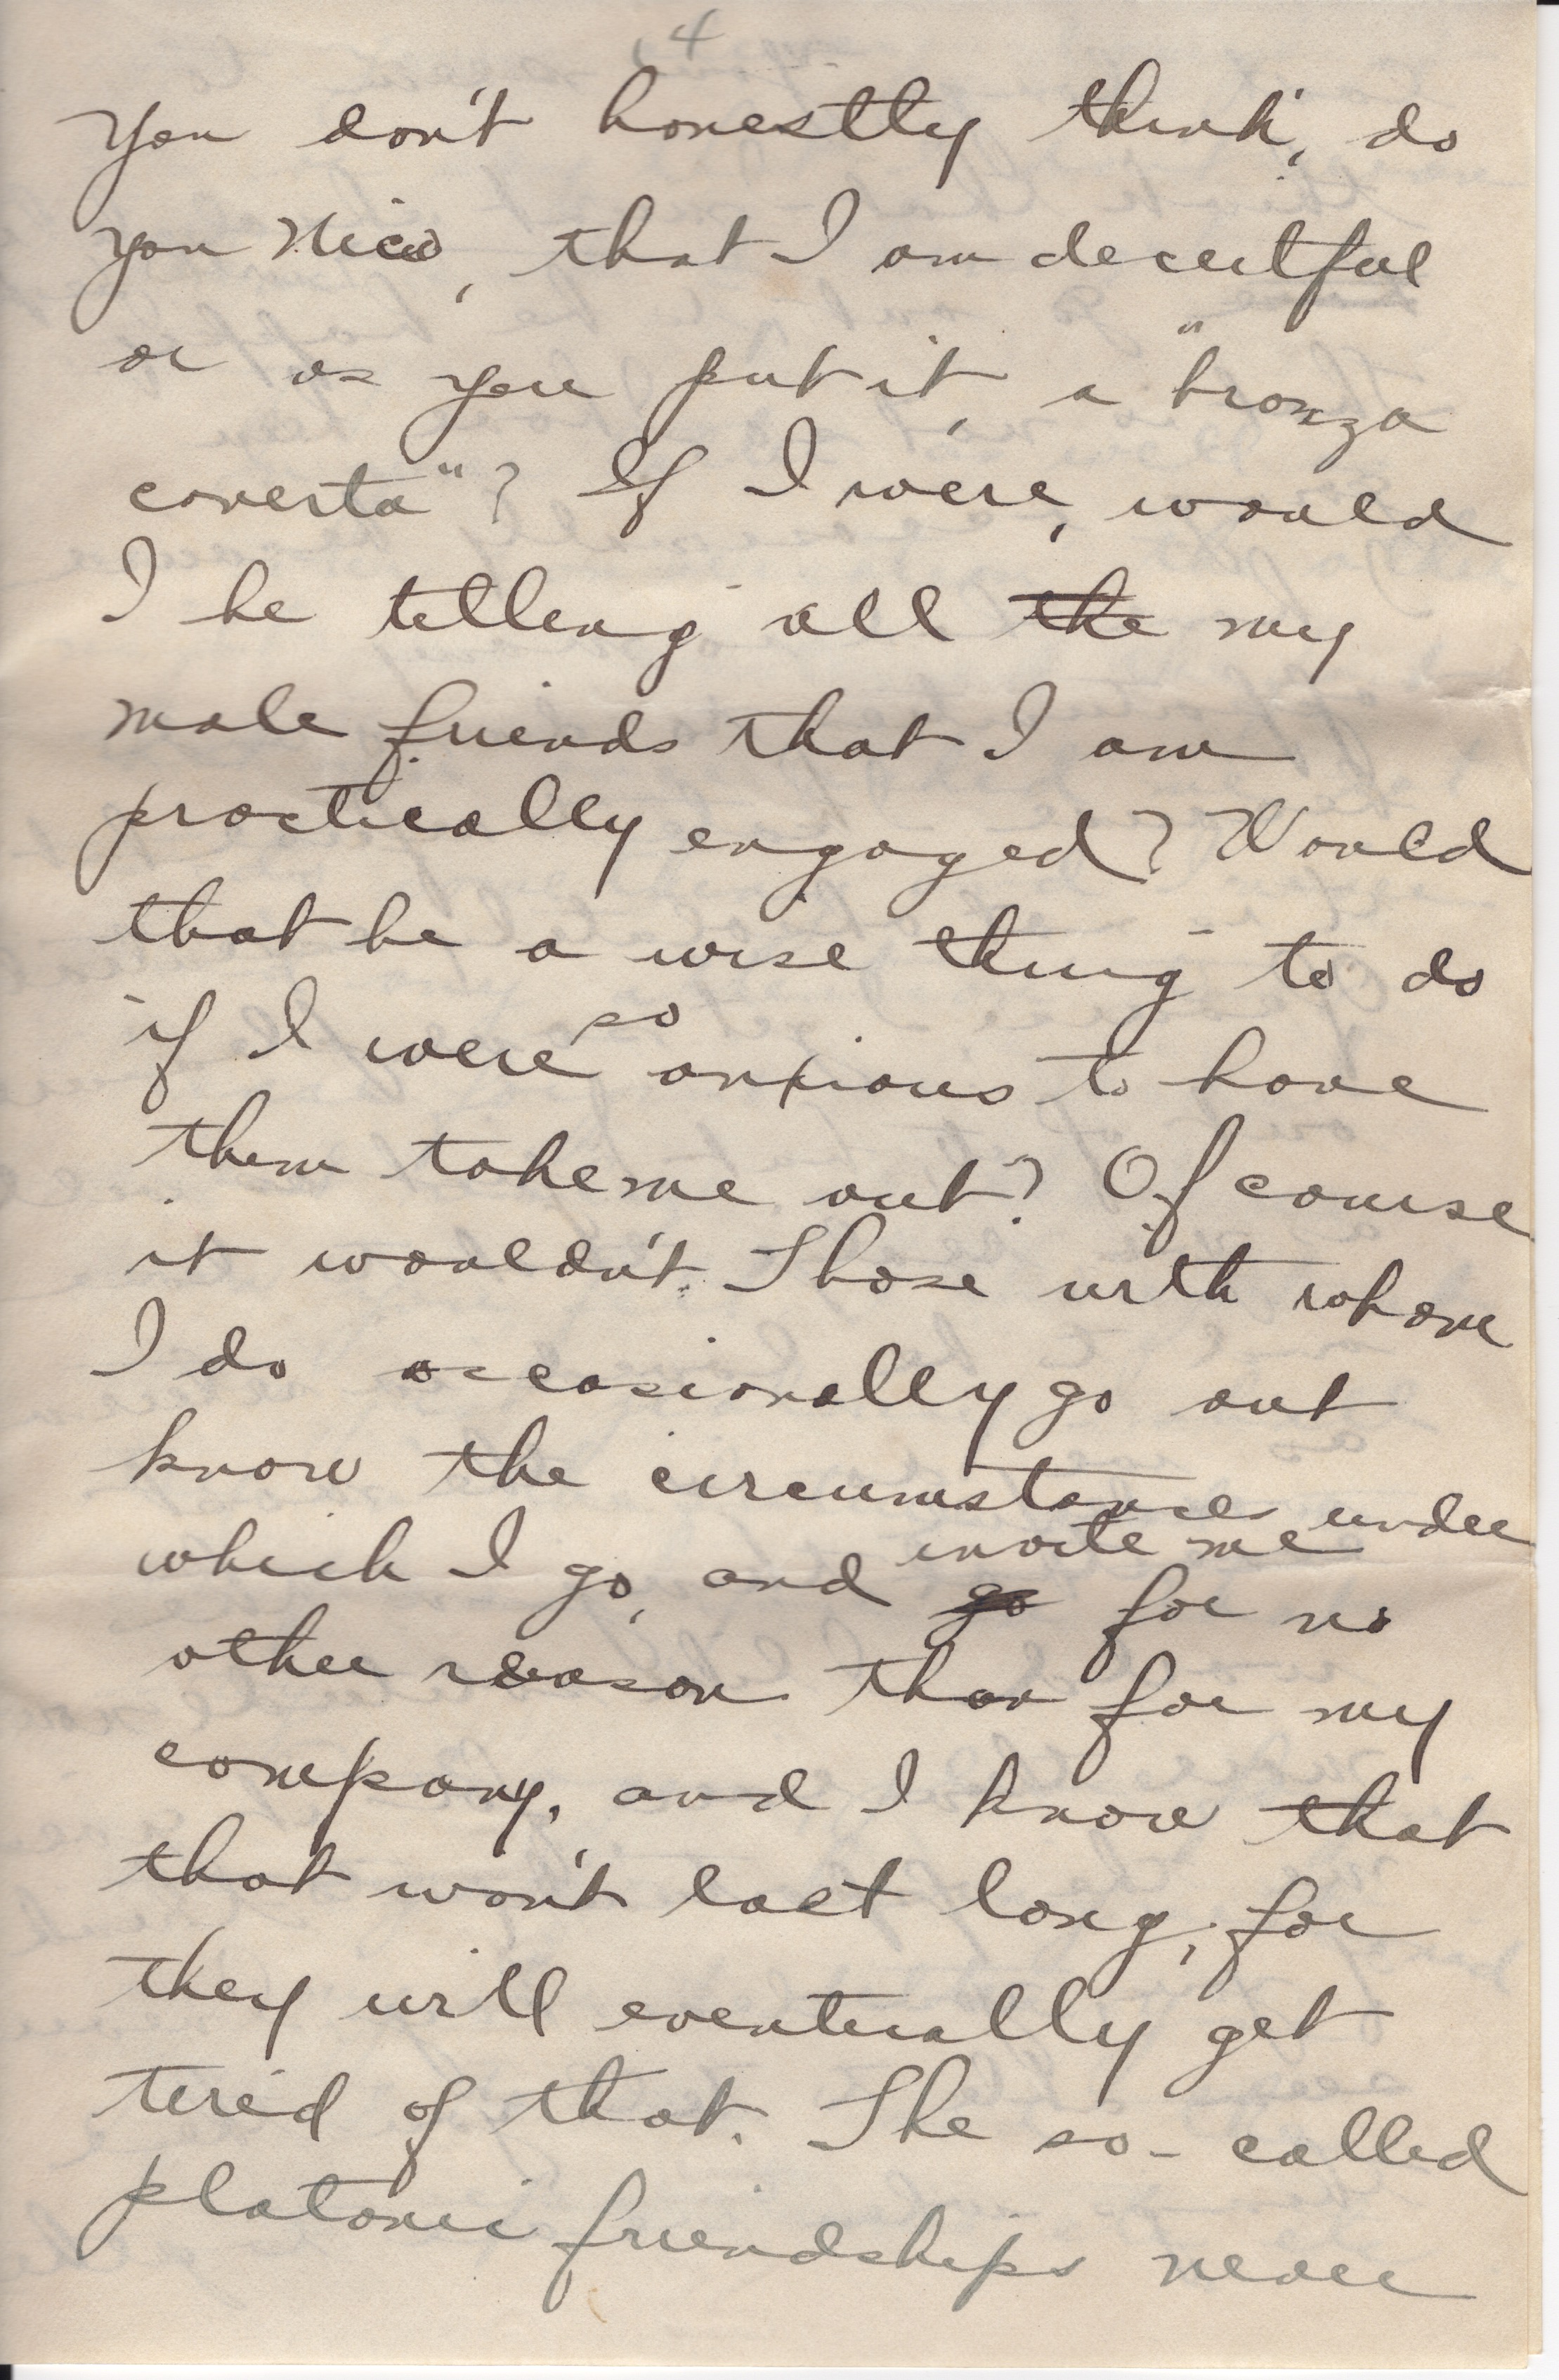 4
You don't honestly think, do
you Nico, that I am deceitful
or as you put it, a "bronza
coverta"? If I were, would
I be telling all the my
male friends that I am
practically engaged? Would
that be a wise thing to do
if I were so anxious to have
them take me out? Of course
it wouldn't. Those with whom
I do occasionally go out
know the circumstances under
which I go, and go invite me for no
other reason than for my
company, and I know that
that won't last long, for
they will eventually get
tired of that. The so-called
platonic friendships never